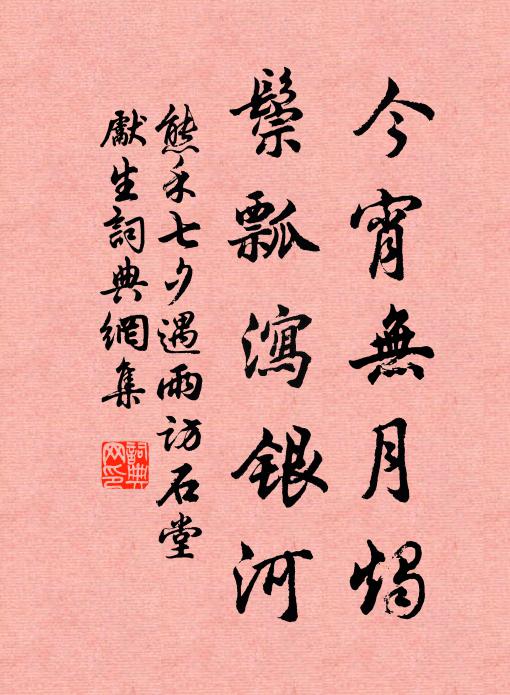 今宵無月燭
鬃瓢瀉銀河
熊禾七夕遇雨访石堂
獻生詞典網集
詞典网印